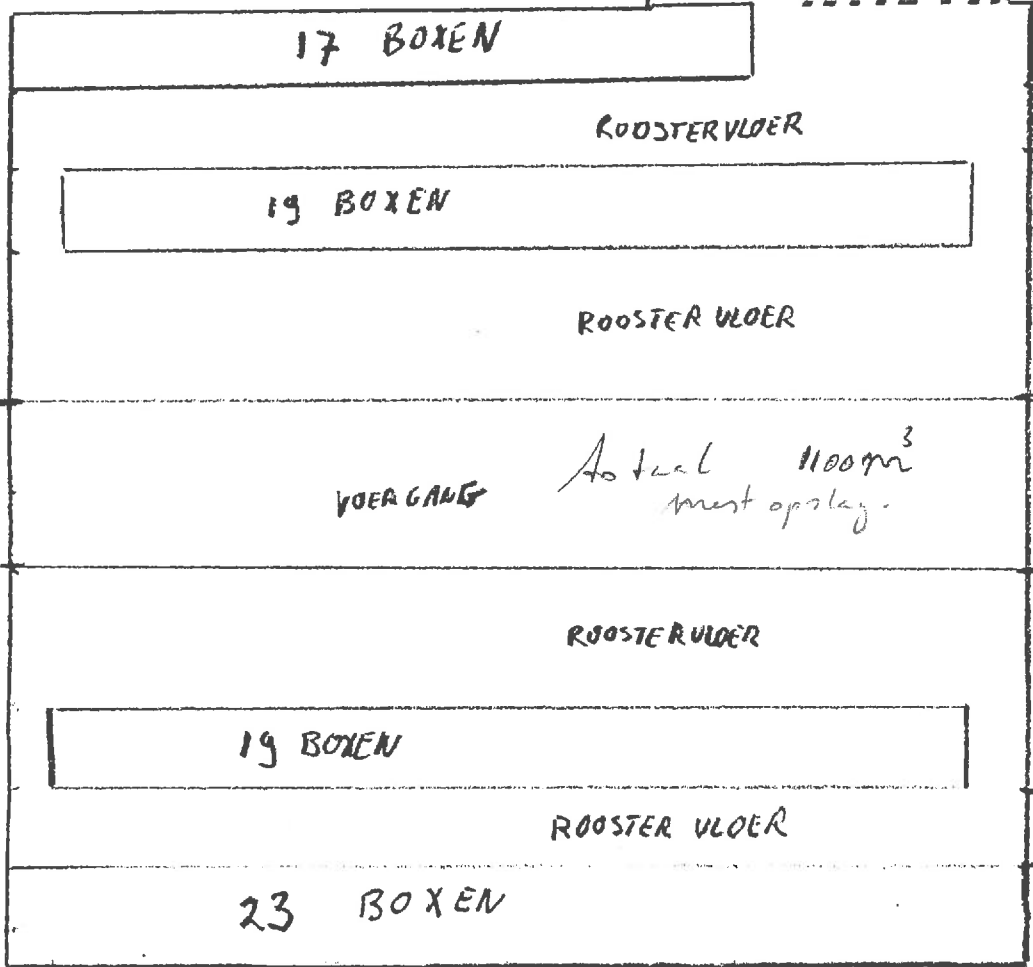 17 BOXEN
ROOSTERVLOER
19 BOXEN
ROOSTER VLOER
VOERGANG
1100 m³
mest opslag.
ROOSTERVLOER
19 BOXEN
ROOSTER VLOER
23 BOXEN